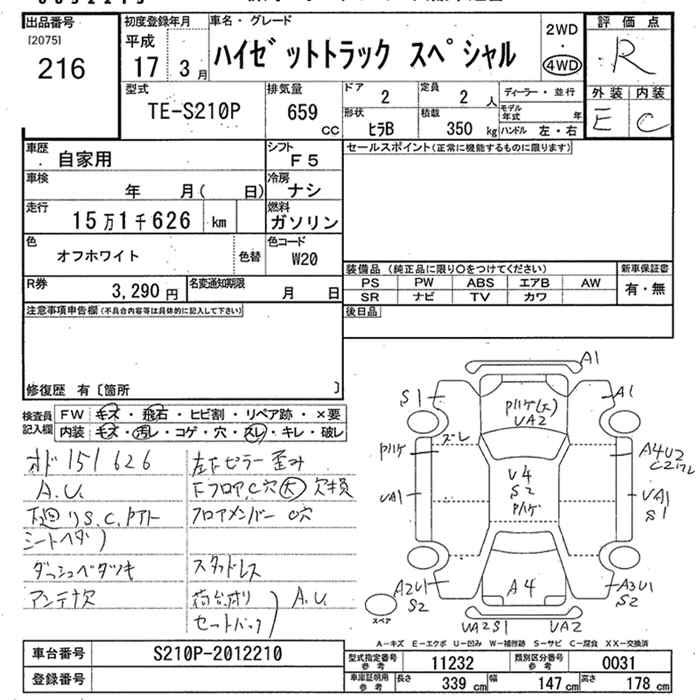 出品番号
[2075]
216
初度登録年月
平成
17 3月
車名・グレード
ハイゼットトラック スペシャル
2WD
・
4WD
評価点
R
外装 内装
E C
型式
TE-S210P
排気量
659 CC
ドア
2
定員
2 人
形状
ヒラB
積載
350 kg
ディーラー・並行
モデル年式 年
ハンドル 左・右
車歴
自家用
シフト
F5
車検
年 月( 日)
冷房
ナシ
走行
15万1千626 km
燃料
ガソリン
色
オフホワイト
色替
色コード
W20
R券
3,290 円
名変通知期限
月 日
セールスポイント(正常に機能するものに限ります)
装備品 (純正品に限り○をつけてください)
新車保証書
PS PW ABS エアB AW
有・無
SR ナビ TV カワ
後日品
注意事項申告欄(不具合内容等は具体的に記入して下さい)
修復歴 有〔箇所 〕
検査員記入欄
FW キズ・飛石・ヒビ割・リペア跡・×要
内装 キズ・汚レ・コゲ・穴・スレ・キレ・破レ
オド151626
A.U.
下廻りS.C.
シートヘタリ
ダッシュベタツキ
アンテナ欠
左下ピラー歪み
FフロアC穴 大 欠損
フロアメンバー C穴
スタッドレス
荷台曲り
セットバック
A.U.
A1
S1
A1
UA2
ズレ
A4U2
VA1
V4
S2
VA1
S1
A2U1
S2
A4
A3U1
S2
スペア
UA2S1
UA2
A-キズ E-エクボ U-凹み W-補修跡 S-サビ C-腐食 XX-交換済
車台番号
S210P-2012210
登録番号
型式指定番号 参考
11232
類別区分番号 参考
0031
車庫証明用 参考
長さ 339 cm
幅 147 cm
高さ 178 cm